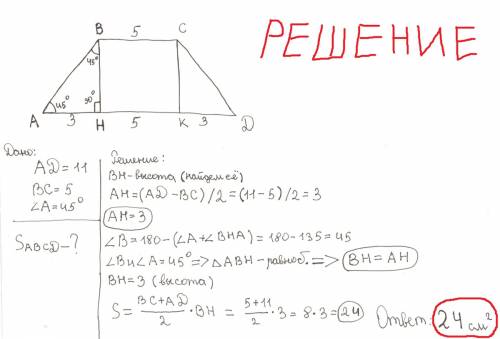 РЕШЕНИЕ
B 5 C
45°
45° 90°
A 3 H 5 K 3 D
Дано:
AD=11
BC=5
∠A=45°
SABCD-?
Решение:
BH-высота (найдем её)
AH=(AD-BC)/2=(11-5)/2=3
AH=3
∠B=180-(∠A+∠BHA)=180-135=45
∠B и ∠A=45°=>△ABH-равноб.=> BH=AH
BH=3 (высота)
S= BC+AD/2 · BH = 5+11/2 · 3 = 8·3=24
Ответ: 24 см²